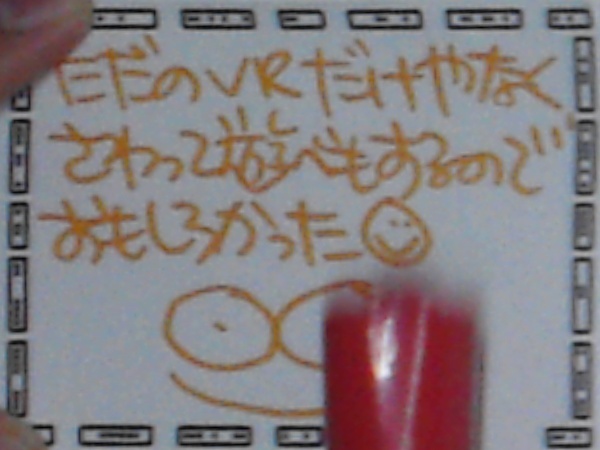 ただのVRだけやなく
さわって遊べもするので
おもしろかった